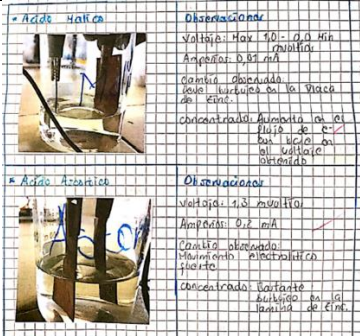 • Acido Malico
Observaciones
Voltaje: Max 1,0 - 0,0 Min
muoltios
Amperios: 0,01 mA
Cambio observado:
Leve burbujeo en la placa
de Einc.
concentrado: Aumenta en el
flujo de e-
con base en
el voltaje
obtenido
• Acido Ascorbico
Observaciones
voltaje: 1,3 muoltio
Amperios: 0,2 mA
Cambio observado:
Movimiento electrolitico
fuerte
concentrado: Bastante
burbujeo en la
lamina de Einc.